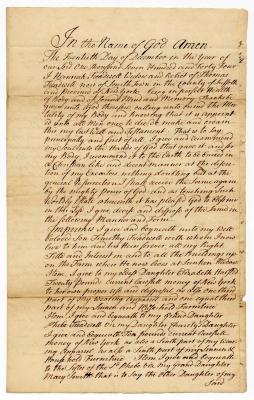 In the Name of God Amen
The Twentieth Day of December in the Year of
our Lord One thousand Seven Hundred and Forty Four
I Hannah Treadwell Widow and Relict of Thomas
Treadwell now of Smith Town in the County of Suffolk
and Province of New York. Being in perfect Health
of Body and of Sound Mind and Memory Thanks be
given unto God therefor calling unto mind the Mor
tality of my Body and knowing that it is appoint
ed unto all Men once to die do make and ordain
this my last Will and Testament. That is to say
principally and first of all I give and recommend
my Soul into the Hands of God that gave it and for
my Body I recommend it to the Earth to be buried in
a Christian like and decent manner at the discre
tion of my Executors nothing doubting but at the
general Resurrection I shall receive the Same again
by the mighty Power of God. and as touching Such
Worldly Estate wherewith it has pleased God to bless me
in this life I give devise and dispose of the Same in
the following Manner and Form.
Imprimis I give and bequeath unto my Well
beloved Son Timothy Treadwell
to him and his Heirs forever all my Right
Title and Interest in and to all the Buildings up
on the Farm where he now lives at Sunken Meadow
Item. I give to my Daughter Elizabeth
Twenty Pounds current lawful money of New York
to her own proper use and disposal as also one third
part of my wearing Apparel and one equal third
part of my Linnen and Household Furniture
Item I give and bequeath to my Daughter
Phebe Treadwell
and bequeath Ten pounds current lawful
money of New York as also a Sixth part of my Wear
ing Apparel as also a Sixth part of my Linnen &
Household Furniture. Item I give and bequeath
to the Sister of the Sd Phebe viz my Grand Daughter
Mary that is to Say the other Daughter of my
Said